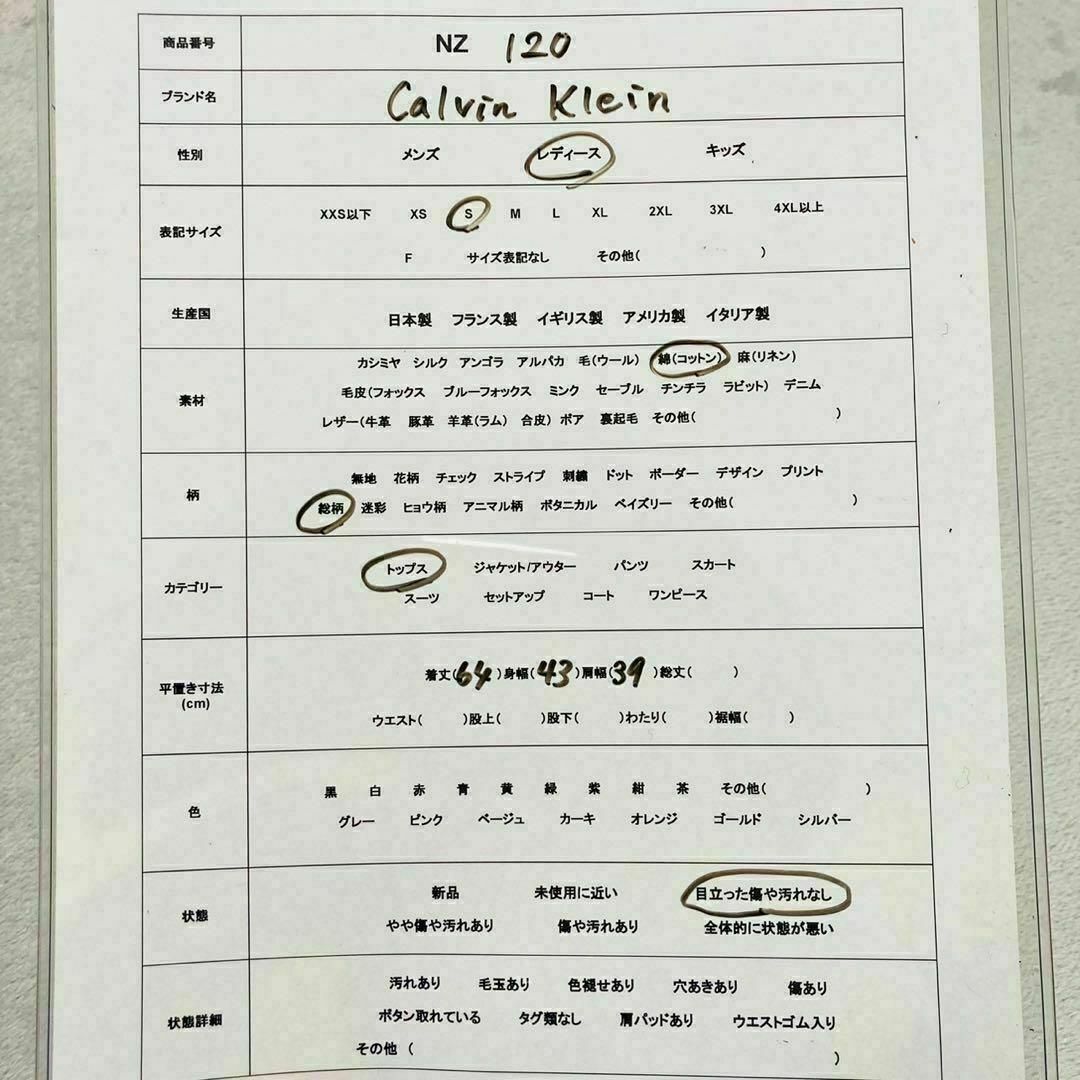 商品番号 NZ 120
ブランド名 Calvin Klein
性別 メンズ レディース キッズ
表記サイズ
XXS以下 XS S M L XL 2XL 3XL 4XL以上
F サイズ表記なし その他( )
生産国 日本製 フランス製 イギリス製 アメリカ製 イタリア製
素材
カシミヤ シルク アンゴラ アルパカ 毛(ウール) 綿(コットン) 麻(リネン)
毛皮(フォックス ブルーフォックス ミンク セーブル チンチラ ラビット) デニム
レザー(牛革 豚革 羊革(ラム) 合皮) ボア 裏起毛 その他( )
柄
無地 花柄 チェック ストライプ 刺繍 ドット ボーダー デザイン プリント
総柄 迷彩 ヒョウ柄 アニマル柄 ボタニカル ペイズリー その他( )
カテゴリー
トップス ジャケット/アウター パンツ スカート
スーツ セットアップ コート ワンピース
平置き寸法
(cm)
着丈(64)身幅(43)肩幅(39)総丈( )
ウエスト( )股上( )股下( )わたり( )裾幅( )
色
黒 白 赤 青 黄 緑 紫 紺 茶 その他( )
グレー ピンク ベージュ カーキ オレンジ ゴールド シルバー
状態
新品 未使用に近い 目立った傷や汚れなし
やや傷や汚れあり 傷や汚れあり 全体的に状態が悪い
状態詳細
汚れあり 毛玉あり 色褪せあり 穴あきあり 傷あり
ボタン取れている タグ類なし 肩パッドあり ウエストゴム入り
その他 ( )